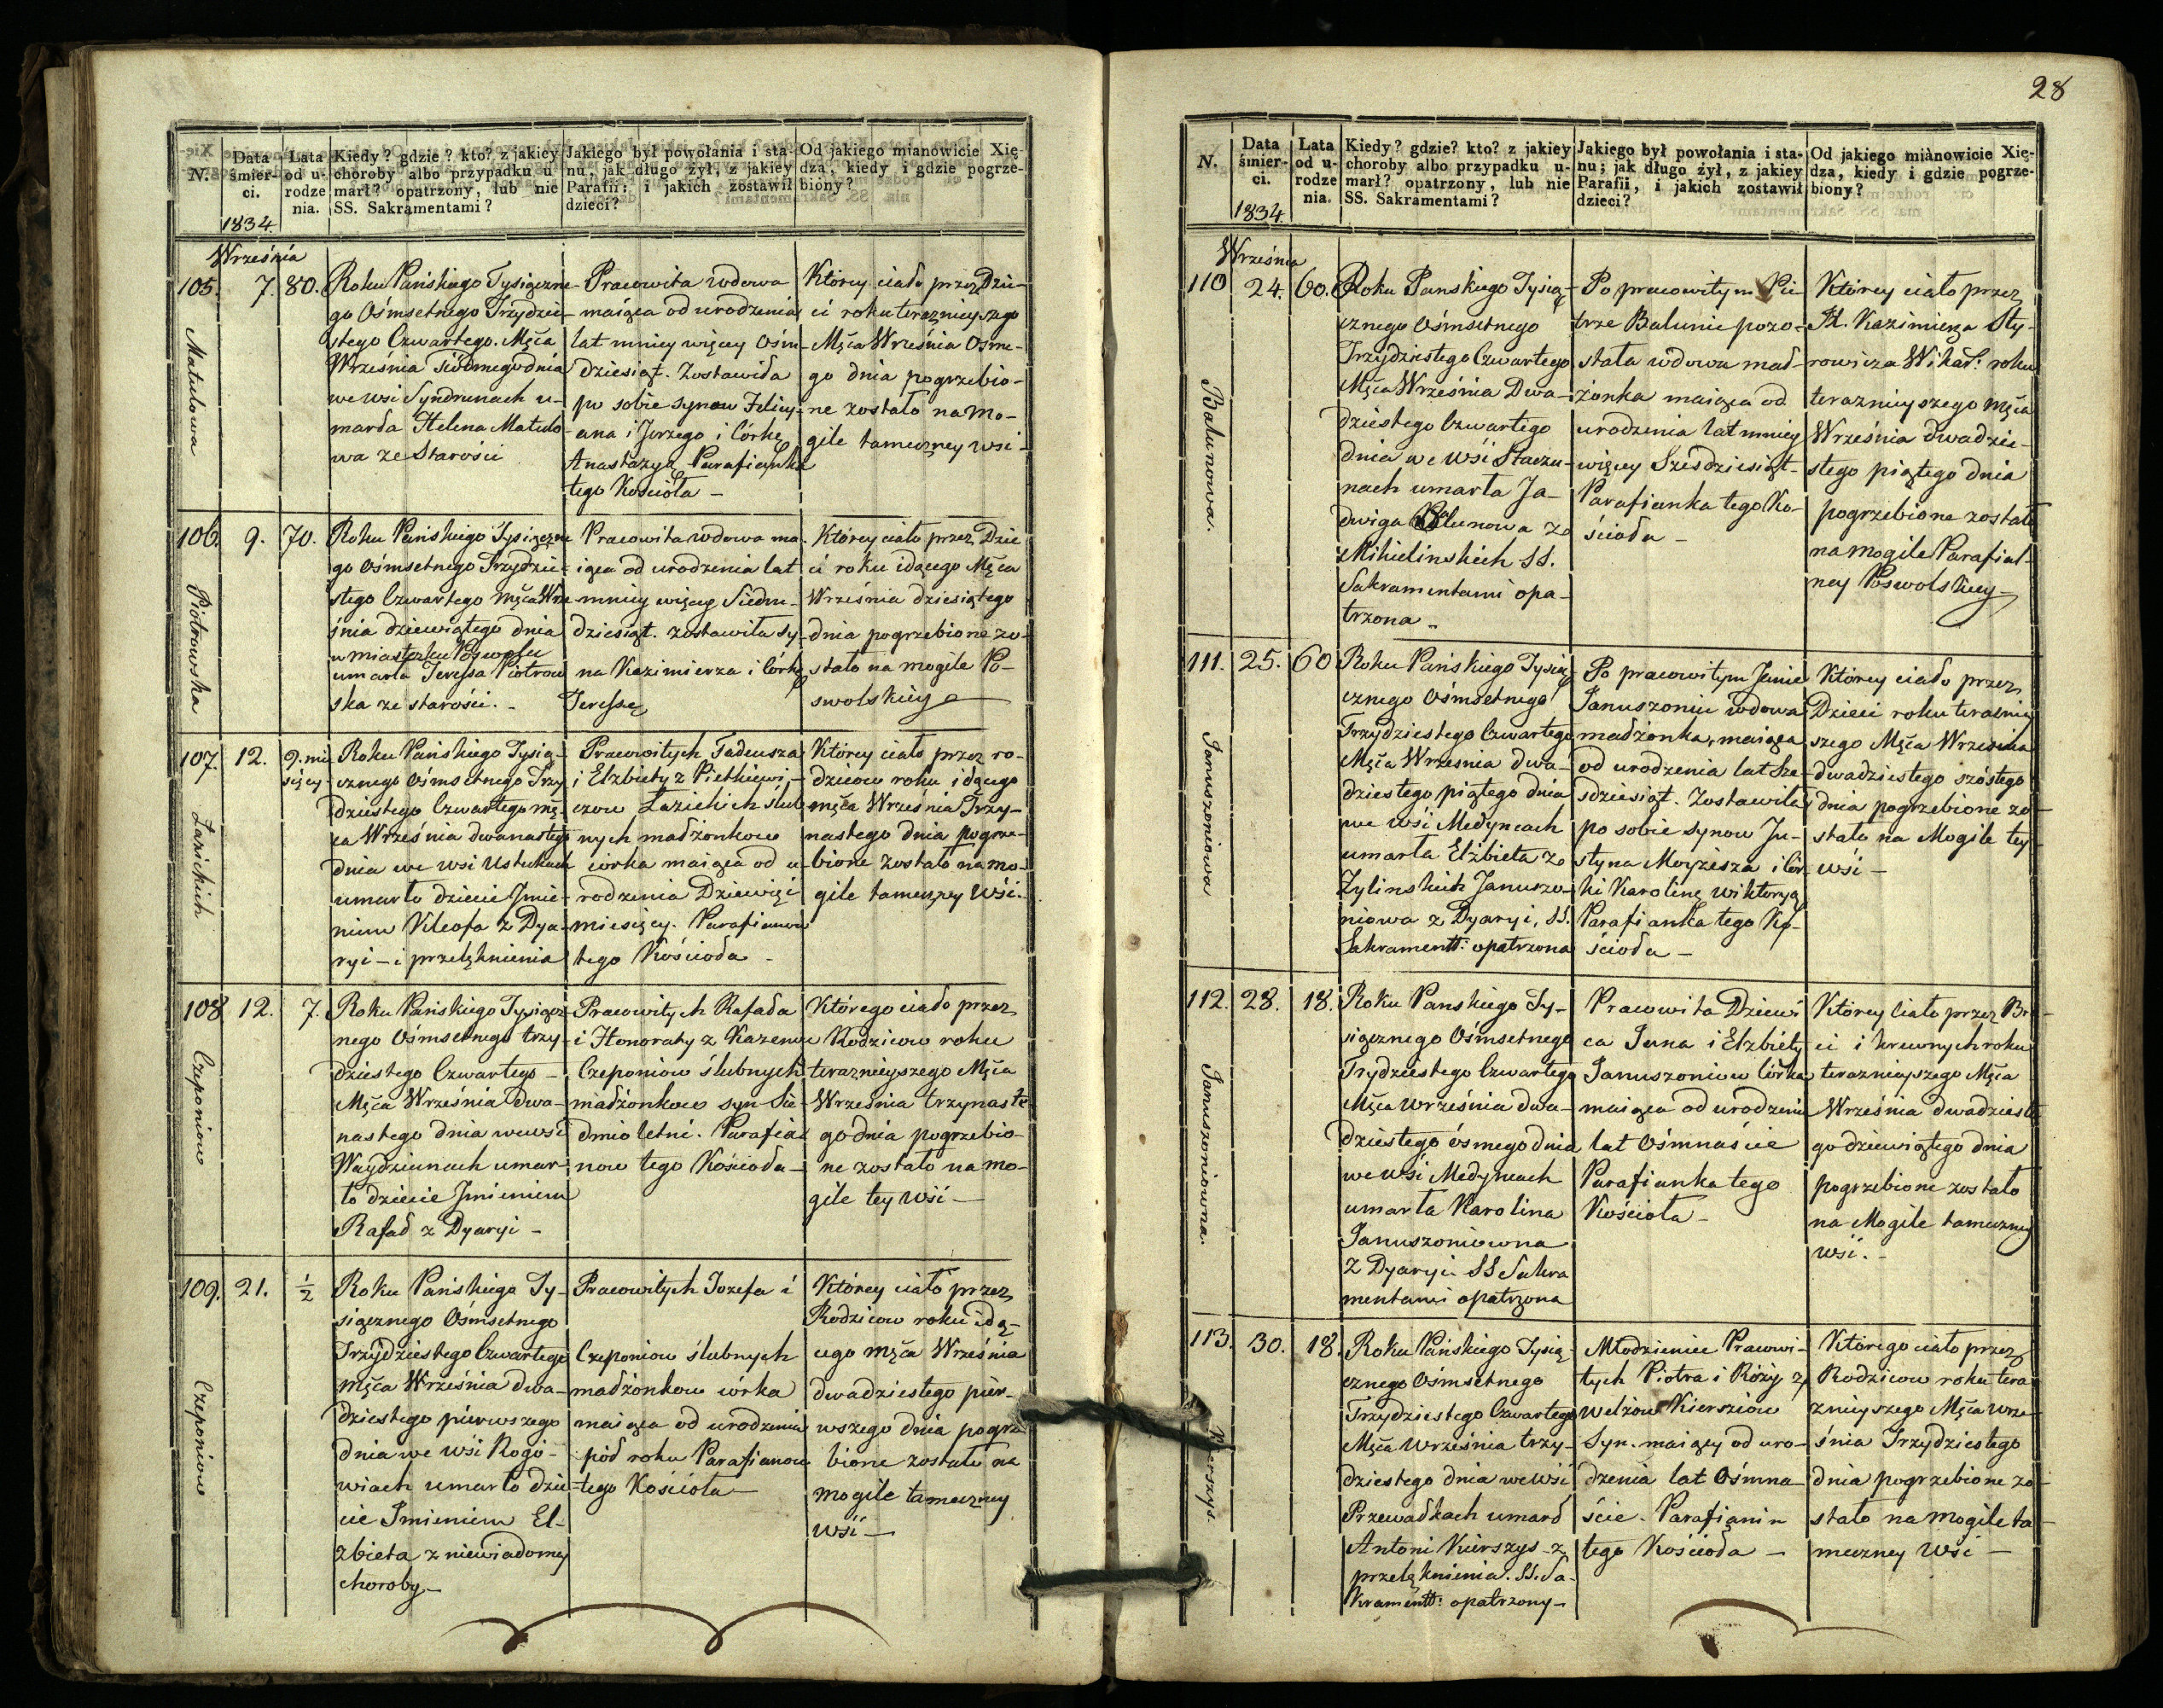 N.
Data śmier-
ci.
1834.
Lata
od u-
rodze
nia.
Kiedy? gdzie? kto? z jakiey
choroby albo przypadku u
marł? opatrzony, lub nie
SS. Sakramentami?
Jakiego był powołania i sta-
nu, jak długo żył, z jakiey
Parafii; i jakich zostawił
dzieci?
Od jakiego mianowicie Xię-
dza, kiedy i gdzie pogrze-
biony?
Września
105.
Matulowa
7.
80.
Roku Pańskiego Tysiączne-
go Ośmsetnego Trzydzie-
stego Czwartego. Męca
Września Siódmego dnia
we wsi Syndrunach u-
marła Helena Matulo-
wa ze Starości
Pracowita wdowa
maiąca od urodzenia
lat mniey więcey Ośm-
dziesiąt. Zostawiła
po sobie synow Felicy-
ana i Jerzego i Córkę
Anastazyą Parafianka
tego Kościoła -
Którey ciało przez Dzie-
ci roku teraznieyszego
Męca Września Osme-
go dnia pogrzebio-
ne zostało na mo-
gile tameczney wsi -
106.
Piotrowska
9.
70.
Roku Pańskiego Tysiączne
go Ośmsetnego Trzydzie-
stego Czwartego Męca Wrze
śnia dziewiątego dnia
w miasteczku Poswolu
umarła Teressa Piotrow
ska ze starości. -
Pracowita wdowa ma-
iąca od urodzenia lat
mniey więcey Siedm-
dziesiąt. zostawiła sy-
na Kazimierza i Córkę
Teressę
Którey ciało przez Dzie
ci roku idącego Męca
Września dziesiątego
dnia pogrzebione zo-
stało na mogile Po-
swolskiey
107.
Łazickich
12.
9. mie
sięcy
Roku Pańskiego Tysią-
cznego Ośmsetnego Trzy
dziestego Czwartego mę-
ca Września dwanastego
dnia we wsi Ustukach
umarło dziecie Jmie-
niem Kleofa z Dya-
ryi - i przelęknienia
Pracowitych Tadeusza
i Elzbiety z Pietkiewi-
czow Łazickich ślub
nych małżonkow
córka maiąca od u-
rodzenia Dziewięć
miesięcy. Parafianow
tego Kościoła -
Którey ciało przez ro-
dzicow roku idącego
męca Września Trzy-
nastego dnia pogrze-
bione zostało na mo-
gile tameczney Wśi.
108
Czeponiow
12.
7.
Roku Pańskiego Tysiącz
nego Ośmsetnego trzy-
dziestego Czwartego -
Męca Września Dwa-
nastego dnia we wsi
Waydziunach umar-
ło dziecie Jmieniem
Rafał z Dyaryi -
Pracowitych Rafała
i Honoraty z Kazenow
Czeponiow ślubnych
małżonkow syn Sie-
dmio letni. Parafia-
now tego Kościoła -
Którego ciało przez
Rodzicow roku
teraznieyszego Męca
Września trzynaste-
go dnia pogrzebio-
ne zostało na mo-
gile tey wśi -
109.
Czeponiow
21.
1/2
Roku Pańskiego Ty-
siącznego Ośmsetnego
Trzydziestego Czwartego
męca Września dwa-
dziestego pierwszego
dnia we wśi Rogo-
wiach umarło dzie-
cie Jmieniem El-
zbieta z niewiadomey
choroby -
Pracowitych Jozefa i
Czeponiow ślubnych
małżonkow córka
maiąca od urodzenia
pół roku Parafianow
tego Kościoła -
Którey ciało przez
Rodzicow roku idą-
cego męca Września
dwadziestego pier-
wszego dnia pogrze
bione zostało na
mogile tameczney
wśi -
28
N.
Data
śmier-
ci.
1834.
Lata
od u-
rodze
nia.
Kiedy? gdzie? kto? z jakiey
choroby albo przypadku u-
marł? opatrzony, lub nie
SS. Sakramentami?
Jakiego był powołania i sta-
nu; jak długo żył, z jakiey
Parafii, i jakich zostawił
dzieci?
Od jakiego mianowicie Xię-
dza, kiedy i gdzie pogrze-
biony?
Września
110
Balunowa.
24.
60.
Roku Panskiego Tysią-
cznego Ośmsetnego
Trzydziestego Czwartego
Męca Września Dwa-
dziestego Czwartego
dnia we wśi Staczu-
nach umarła Ja-
dwiga Balunowa ze
Mikielinskich SS.
Sakramentami opa-
trzona -
Po pracowitym Pie-
trze Balunie pozo-
stała wdowa mał-
żonka maiąca od
urodzenia lat mniey
więcey Sześdziesiąt-
Parafianka tego Ko-
ścioła -
Którey ciało przez
JX. Kazimierza Sty-
rowicza Wikar: roku
teraznieyszego męca
Września dwadzie-
stego piątego dnia
pogrzebione zostało
na mogile Parafial-
ney Poswolskiey
111.
Januszoniowa
25.
60
Roku Pańskiego Tysią
cznego Ośmsetnego
Trzydziestego Czwartego
Męca Wrzesnia dwa-
dziestego piątego dnia
we wśi Medyncach
umarła Elżbieta ze
Zylinskich Januszo-
niowa z Dyaryi, SS.
Sakramentt: opatrzona
Po pracowitym Janie
Januszoniu wdowa
małżonka, maiąca
od urodzenia lat Sze-
sdziesiąt. Zostawiła
po sobie synow Ju-
styna Moyzesza i Cór
ki Karolinę Wiktoryą
Parafianka tego Ko-
ścioła -
Którey ciało przez
Dzieci roku teraźniey
szego Męca Września
dwadziestego szóstego
dnia pogrzebione zo-
stało na Mogile tey
wśi -
112.
Januszoniowna.
28.
18.
Roku Panskiego Ty-
siącznego Ośmsetnego
Trydziestego Czwartego
Męca Września dwa-
dziestego ósmego dnia
we wśi Medyncach
umarła Karolina
Januszoniowna
z Dyaryi SS Sakra
mentami opatrzona
Pracowita Dziewi
ca Jana i Elzbiety
Januszoniow Córka
maiąca od urodzenia
lat Ośmnaście
Parafianka tego
Kościoła -
Którey Ciało przez Bra-
ci i krewnych roku
teraznieyszego Męca
Września dwadzieste
go dziewiątego dnia
pogrzebione zostało
na Mogile tameczney
wśi. -
113.
Kierszys.
30.
18.
Roku Pańskiego Tysią-
cznego Ośmsetnego
Trzydziestego Czwartego
Męca Września trzy-
dziestego dnia we wśi
Przewadkach umarł
Antoni Kierszys z
przelęknienia. SS. Sa-
kramentt: opatrzony -
Młodzieniec Pracowi-
tych Piotra i Róży z
Welżow Kiersziow
Syn. maiący od uro-
dzenia lat Ośmna-
ście. Parafianin
tego Kościoła -
Którego ciało przez
Rodzicow roku tera
znieyszego Męca Wrze-
śnia Trzydziestego
dnia pogrzebione zo-
stało na mogile ta-
meczney Wsi -